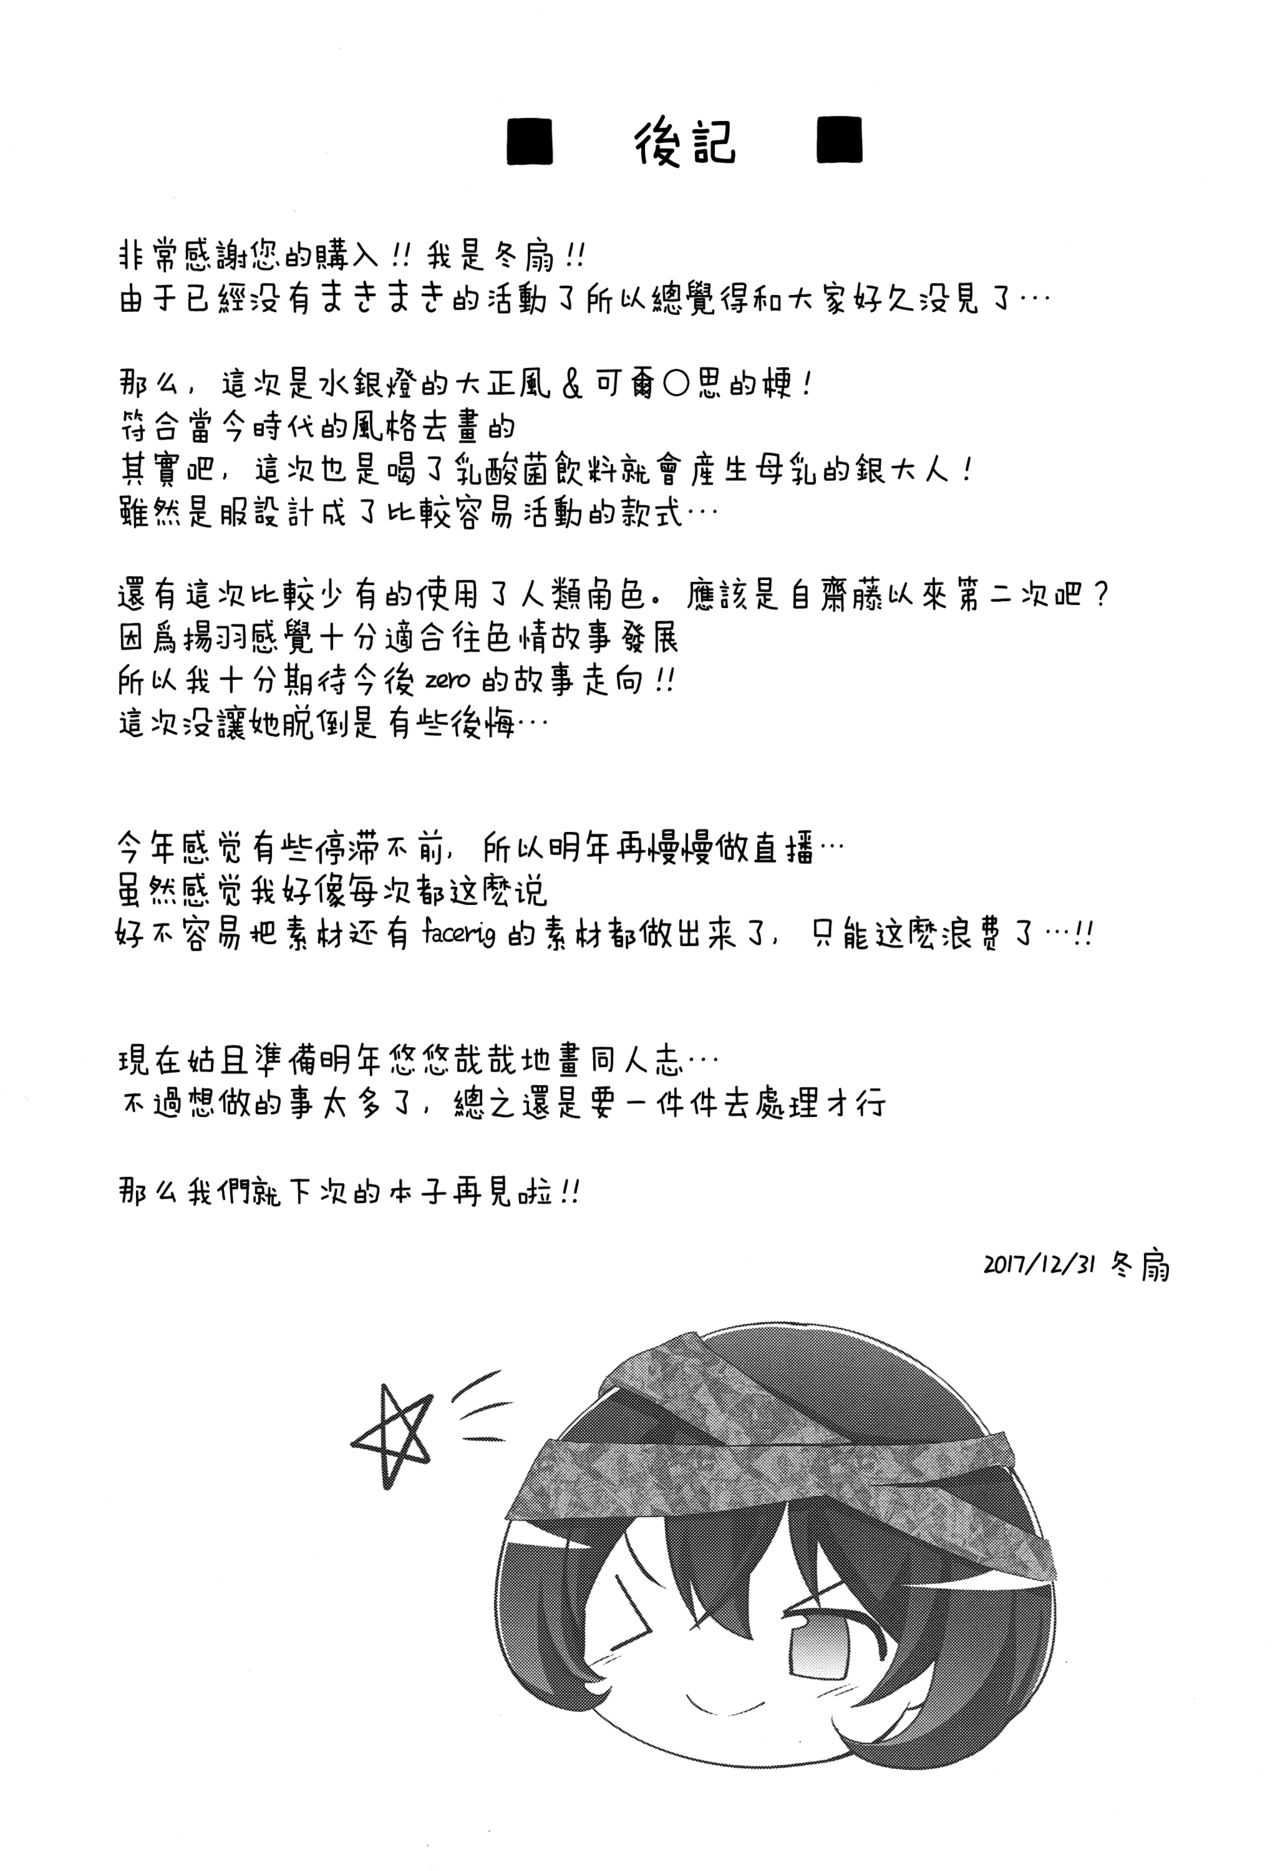 ■ 後記 ■
非常感謝您的購入!! 我是冬扇!!
由于已經没有まきまき的活動了所以總覺得和大家好久没見了…
那么, 這次是水銀燈的大正風&可爾○思的梗!
符合當今時代的風格去畫的
其實吧, 這次也是喝了乳酸菌飲料就會産生母乳的銀大人!
雖然是服設計成了比較容易活動的款式…
還有這次比較少有的使用了人類角色。應該是自齋藤以來第二次吧?
因爲揚羽感覺十分適合往色情故事發展
所以我十分期待今後zero的故事走向!!
這次没讓她脱倒是有些後悔…
今年感觉有些停滞不前, 所以明年再慢慢做直播…
虽然感觉我好像每次都这麽说
好不容易把素材还有facerig的素材都做出来了, 只能这麽浪费了…!!
現在姑且準備明年悠悠哉哉地畫同人志…
不過想做的事太多了, 總之還是要一件件去處理才行
那么我們就下次的本子再見啦!!
2017/12/31 冬扇